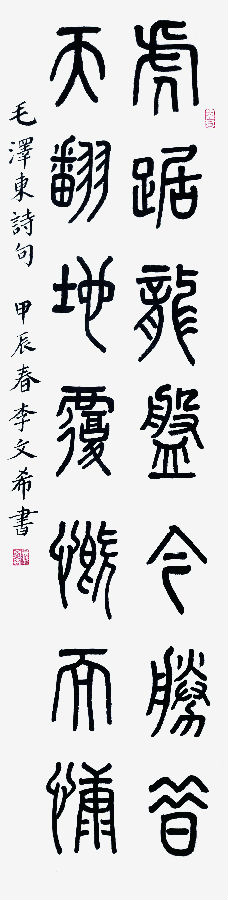 虎踞龍盤今勝昔
天翻地覆慨而慷
毛澤東詩句 甲辰春李文希書